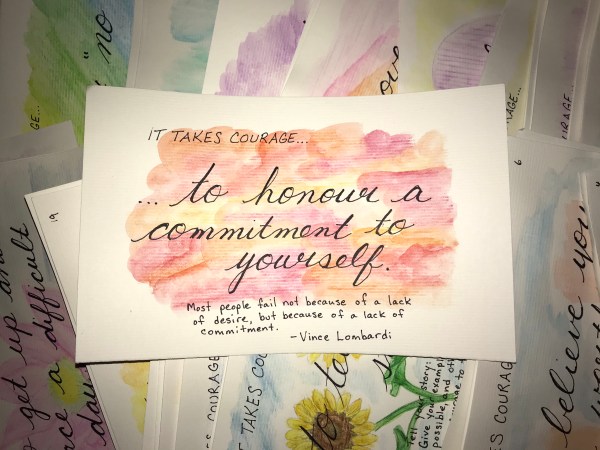 IT TAKES COURAGE...
... to honour a
commitment to
yourself.
Most people fail not because of a lack
of desire, but because of a lack of
commitment.
-Vince Lombardi
"no
GE...
ove
RAGE...
URAGE
19
get up and
a difficult
day
COURAGE
TAKES CO
to te
Tell your story:
Give your exampl
possible, and oth
to
6
S COURAG
believe you
worth